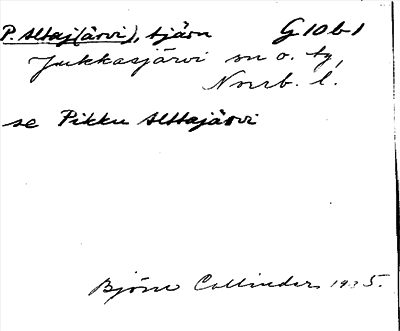 P. Alttaj(ärvi), tjärn G10b1
Jukkasjärvi sn o. tg,
Norrb. l.
se Pikku Alttajärvi
Björn Collinder 1935.